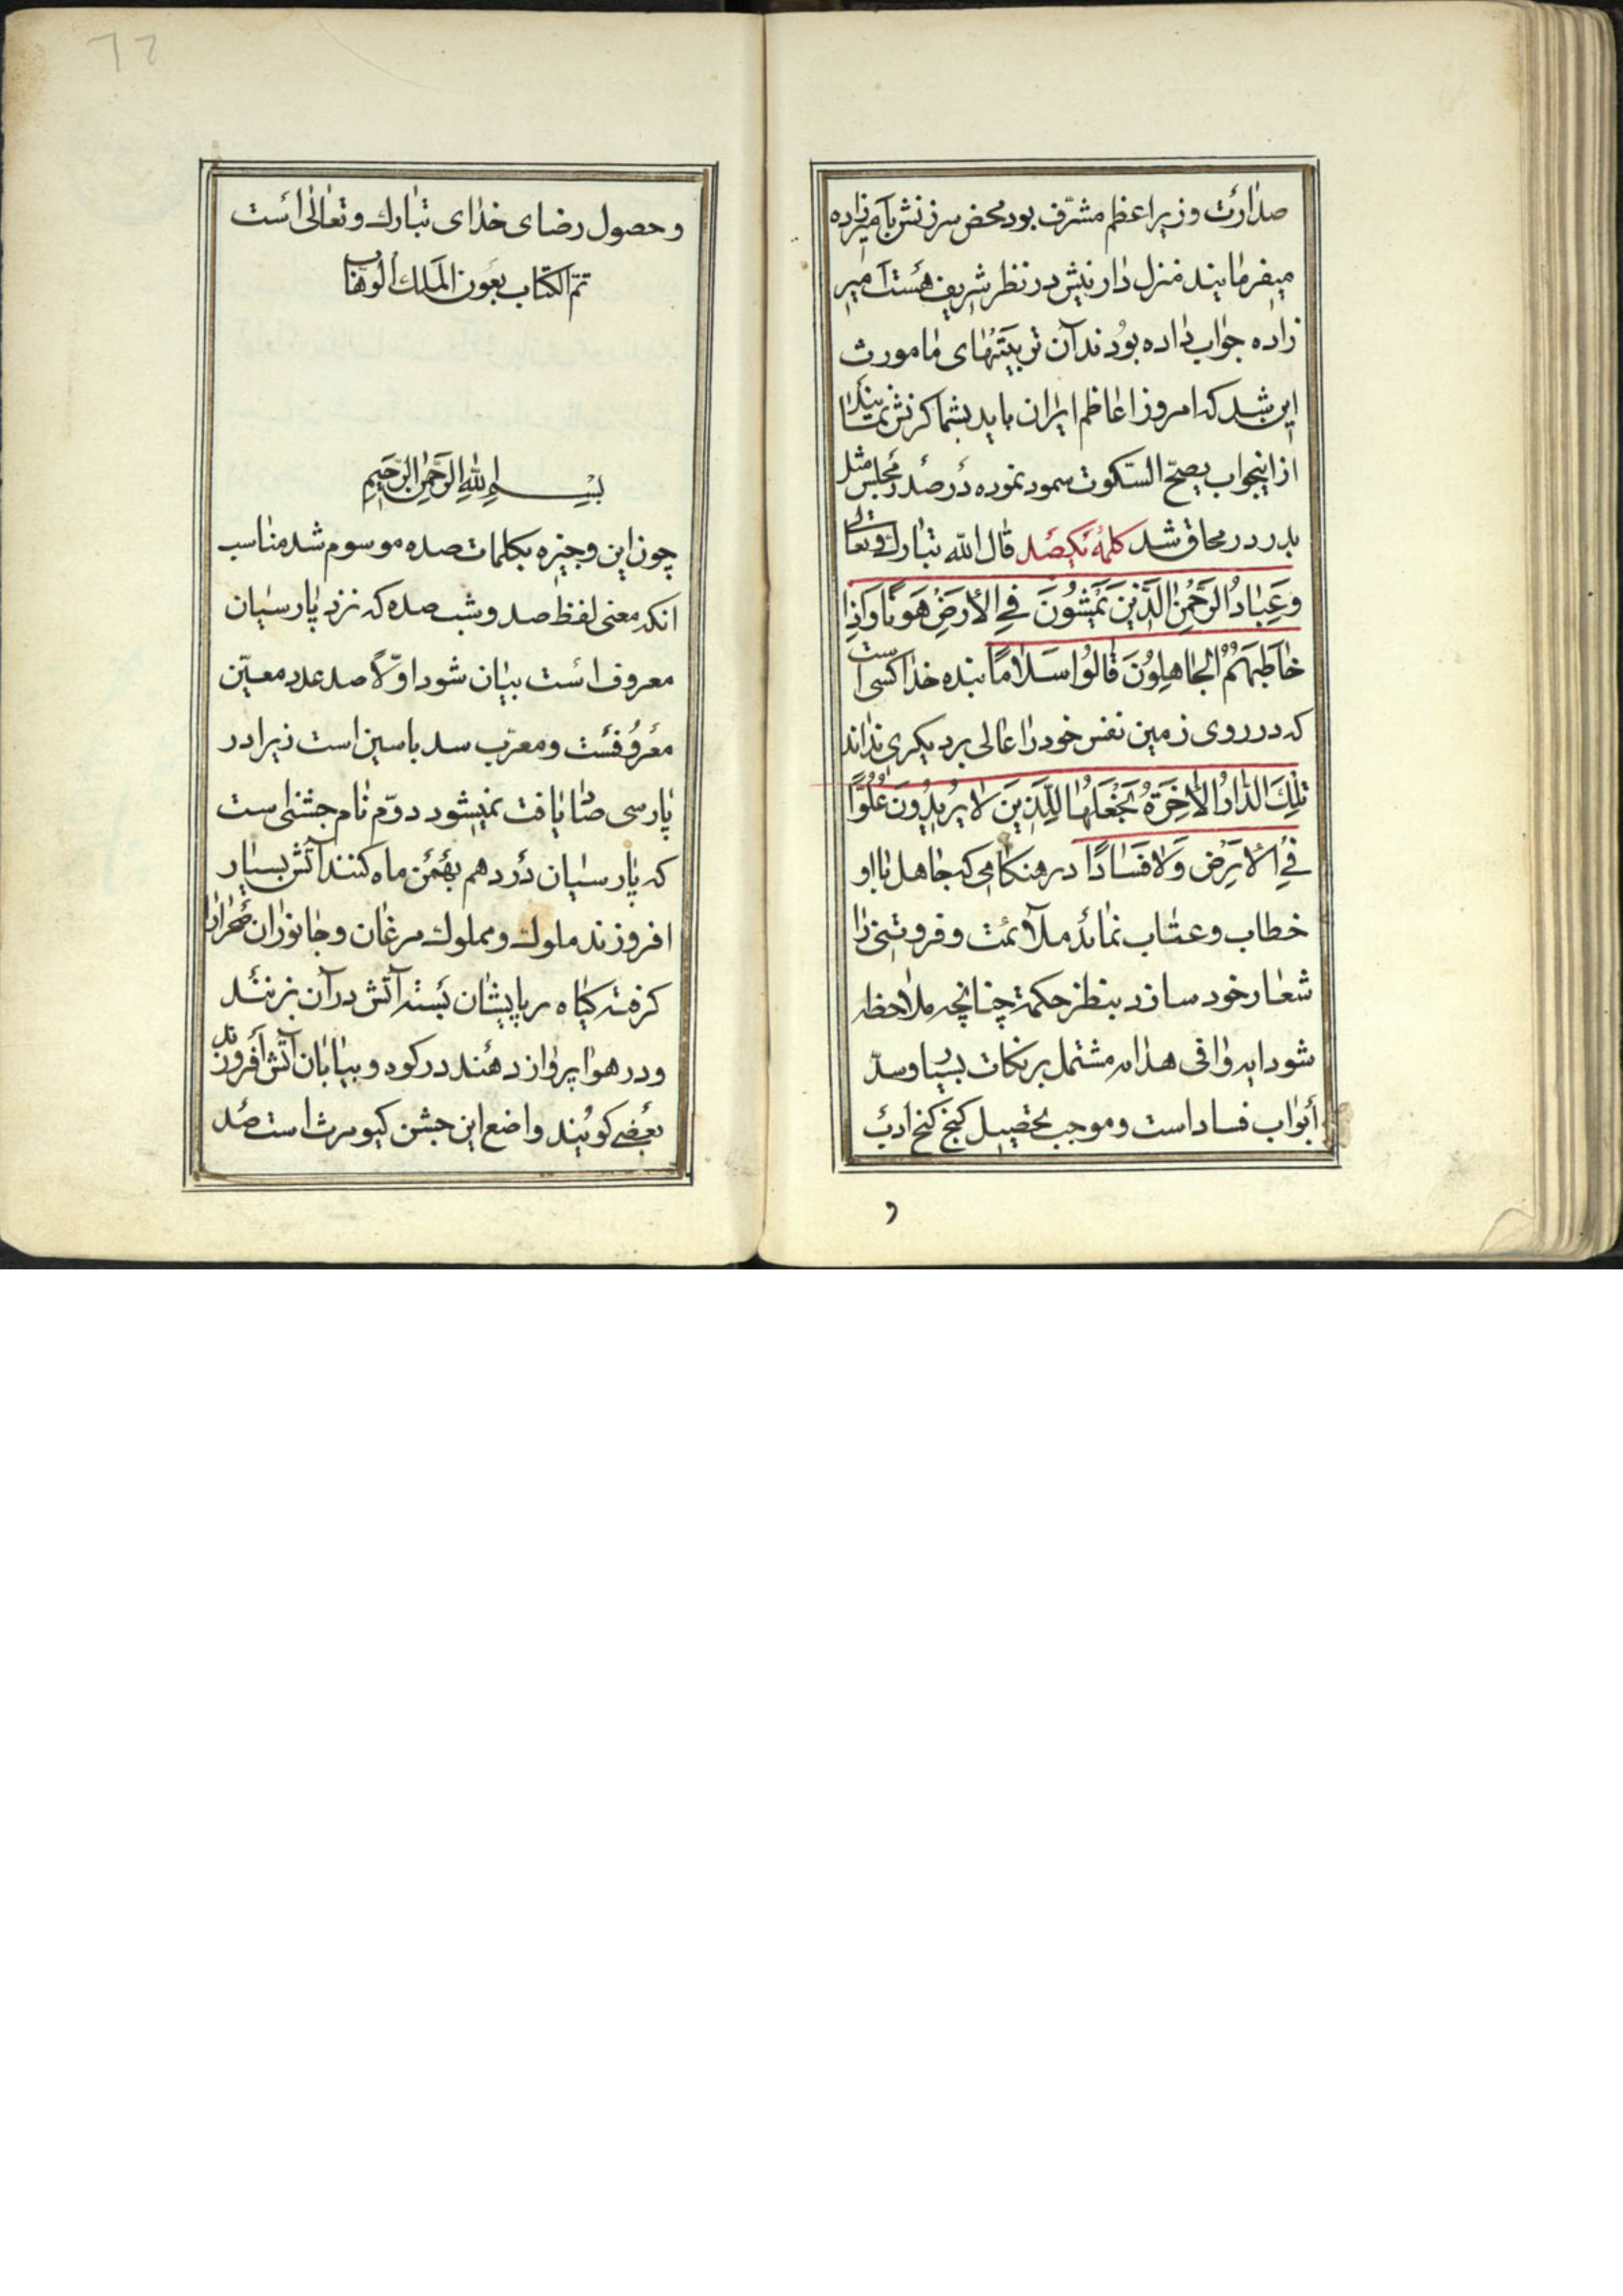 صدارت وزیر اعظم مشرّف بود محض سرزنش بآمیرزاده
میفرمایند منزل دارئیش در نظر شریف هست آمیر
زاده جواب داده بودند آن تربیتهای ما مورث
این شد که امروز اعاظم ایران باید بشما کرنش نمایند
از اینجواب یصحّ السّکوت سمود نموده در صدر مجلس مثل
بدر در محاق شد کلمهٔ یکصد قال الله تبارك وتعالی
وَعِبَادُ الرَّحْمٰنِ الَّذِینَ یَمْشُونَ فِی الْأَرْضِ هَوْنًا وَاِذَا
خَاطَبَهُمُ الْجَاهِلُونَ قَالُوا سَلَامًا بنده خدا کسی است
که در روی زمین نفس خود را عالی بر دیکری نداند
تِلْكَ الدَّارُ الْآخِرَةُ نَجْعَلُهَا لِلَّذِینَ لَا یُرِیدُونَ عُلُوًّا
فِی الْأَرْضِ وَلَا فَسَادًا در هنکامی که جاهل با او
خطاب وعتاب نماید ملایمت وفروتنی را
شعار خود سازد بنظر حکمة چنانچه ملاحظه
شود ایه وافی هدایه مشتمل بر نکات بسیار وسدّ
أبواب فساد است وموجب تحصیل کنج کنج أدب
و
٦٦
وحصول رضای خدای تبارك وتعالی است
تمّ الکتاب بعون الملك الوهّاب
بِسْمِ اللّٰهِ الرَّحْمٰنِ الرَّحِیمِ
چون این وجیزه بکلمات صده موسوم شد مناسب
انکه معنی لفظ صد وشب صده که نزد پارسیان
معروف است بیان شود اوّلاً صد عدد معیّن
معروفست ومعرّب سد با سین است زیرا در
پارسی صاد یافت نمیشود دوّم نام جشنی است
که پارسیان در دهم بهمن ماه کنند آتش بسیار
افروزند ملوك ومملوك مرغان وجانوران صحرا را
کرفته کیاه بر پایشان بسته آتش در آن بزنند
ودر هوا پرواز دهند در کوه وبیابان آتش افروزند
بعضی کویند واضع این جشن کیومرث است صد